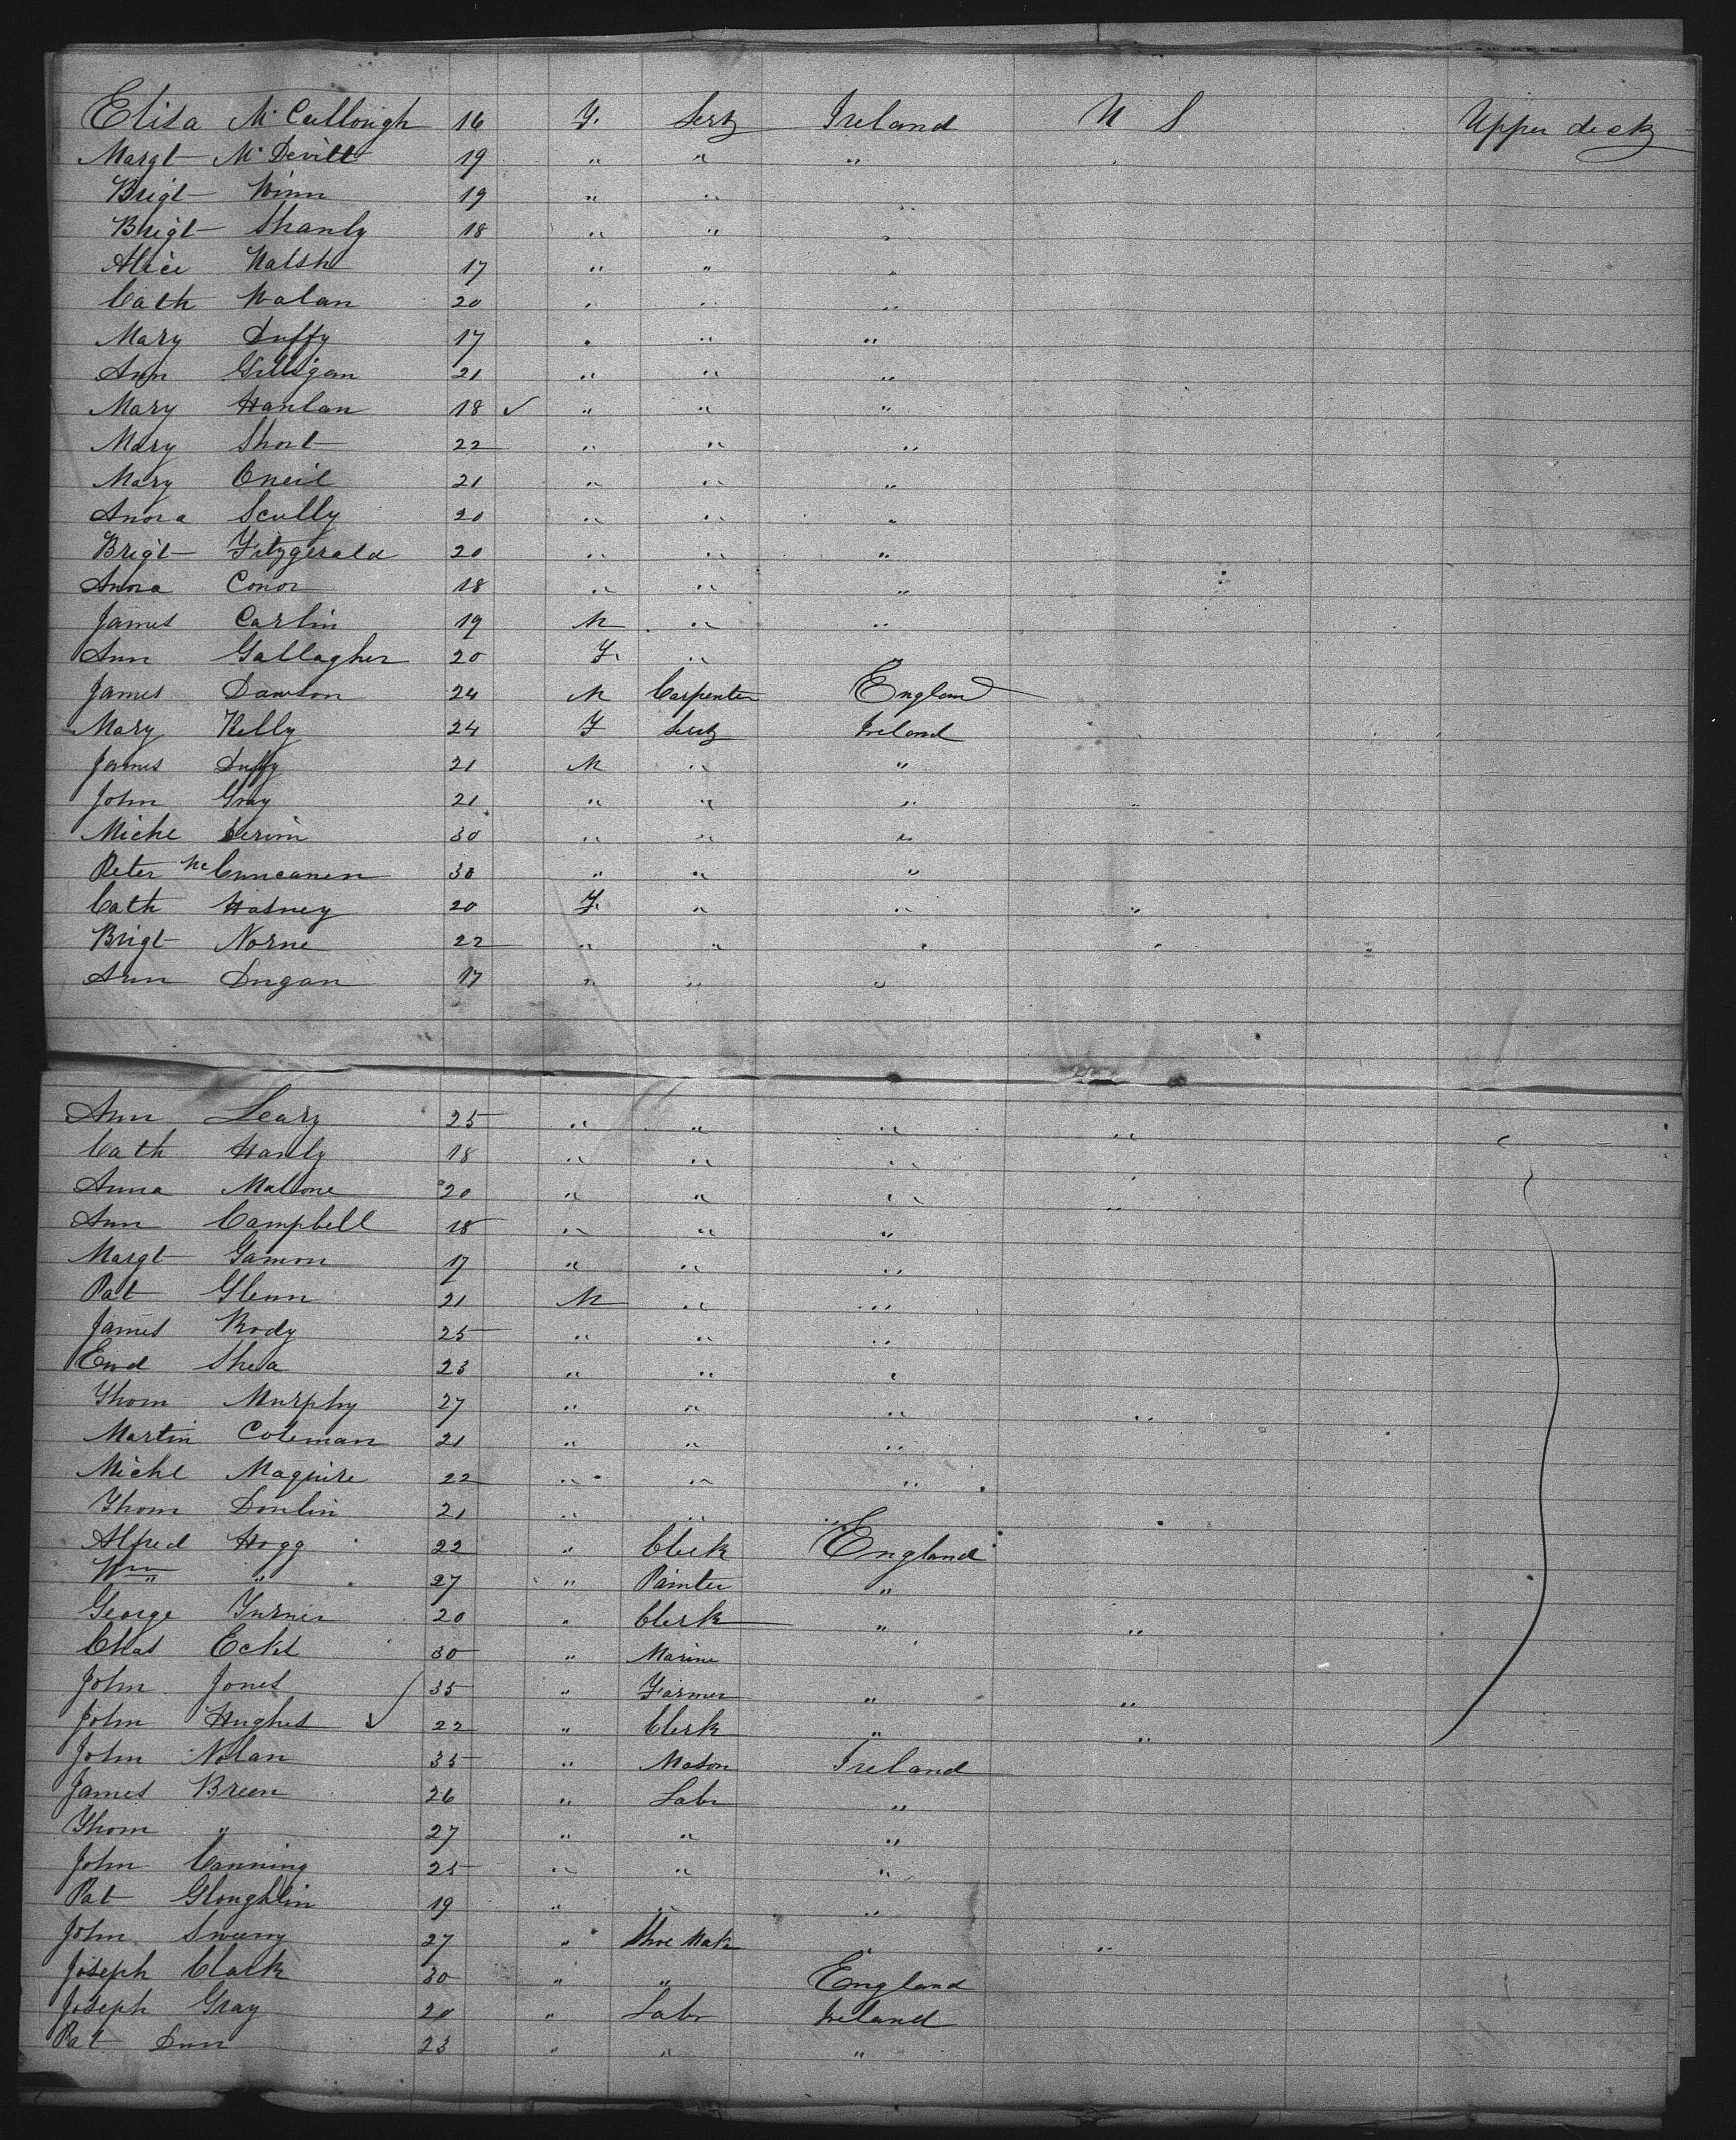 Elisa McCullough 16 F. Serv Ireland U S Upper deck
Margt McDevitt 19 " " "
Brigt Winn 19 " " "
Brigt Shanly 18 " " "
Alice Walsh 17 " " "
Cath Nolan 20 " " "
Mary Duffy 17 " " "
Ann Gilligan 21 " " "
Mary Hanlan 18 ✓ " " "
Mary Short 22 " " "
Mary Oneil 21 " " "
Anora Scully 20 " " "
Brigt Fitzgerald 20 " " "
Anora Conor 18 " " "
James Carlin 19 M " "
Ann Gallagher 20 F. " "
James Dawson 24 M Carpenter England
Mary Kelly 24 F Serv Ireland
James Duffy 21 M " "
John Gray 21 " " " "
Michl 30 " " "
Peter Mc 30 " " "
Cath 20 F. " " "
Brigt Norne 22 " " " "
Ann Dugan 17 " " "
Ann Leary 25 " " " "
Cath Hanly 18 " " "
Anna Malone 20 " " " "
Ann Campbell 18 " " "
Margt Gamon 17 " " "
Pat Glenn 21 M " "
James Brody 25 " " "
Emd Shea 23 " " "
Thom Murphy 27 " " " "
Martin Coleman 21 " " "
Michl Maguire 22 " " "
Thom Donlin 21 " " "
Alfred Hogg 22 " Clerk England
Wm " 27 " Painter "
George Turner 20 " Clerk " "
Chas Eckel 30 " Marine
John Jones 35 " Farmer " "
John Hughes ✓ 22 " Clerk " "
John Nolan 35 " Mason Ireland
James Breen 26 " Labr "
Thom " 27 " " "
John Canning 25 " " "
Pat Gloughlin 19 " " "
John Sweeny 27 " Shoe Makr " "
Joseph Clark 30 " " England
Joseph Gray 20 " Labr Ireland
Pat Dunn 23 " " "